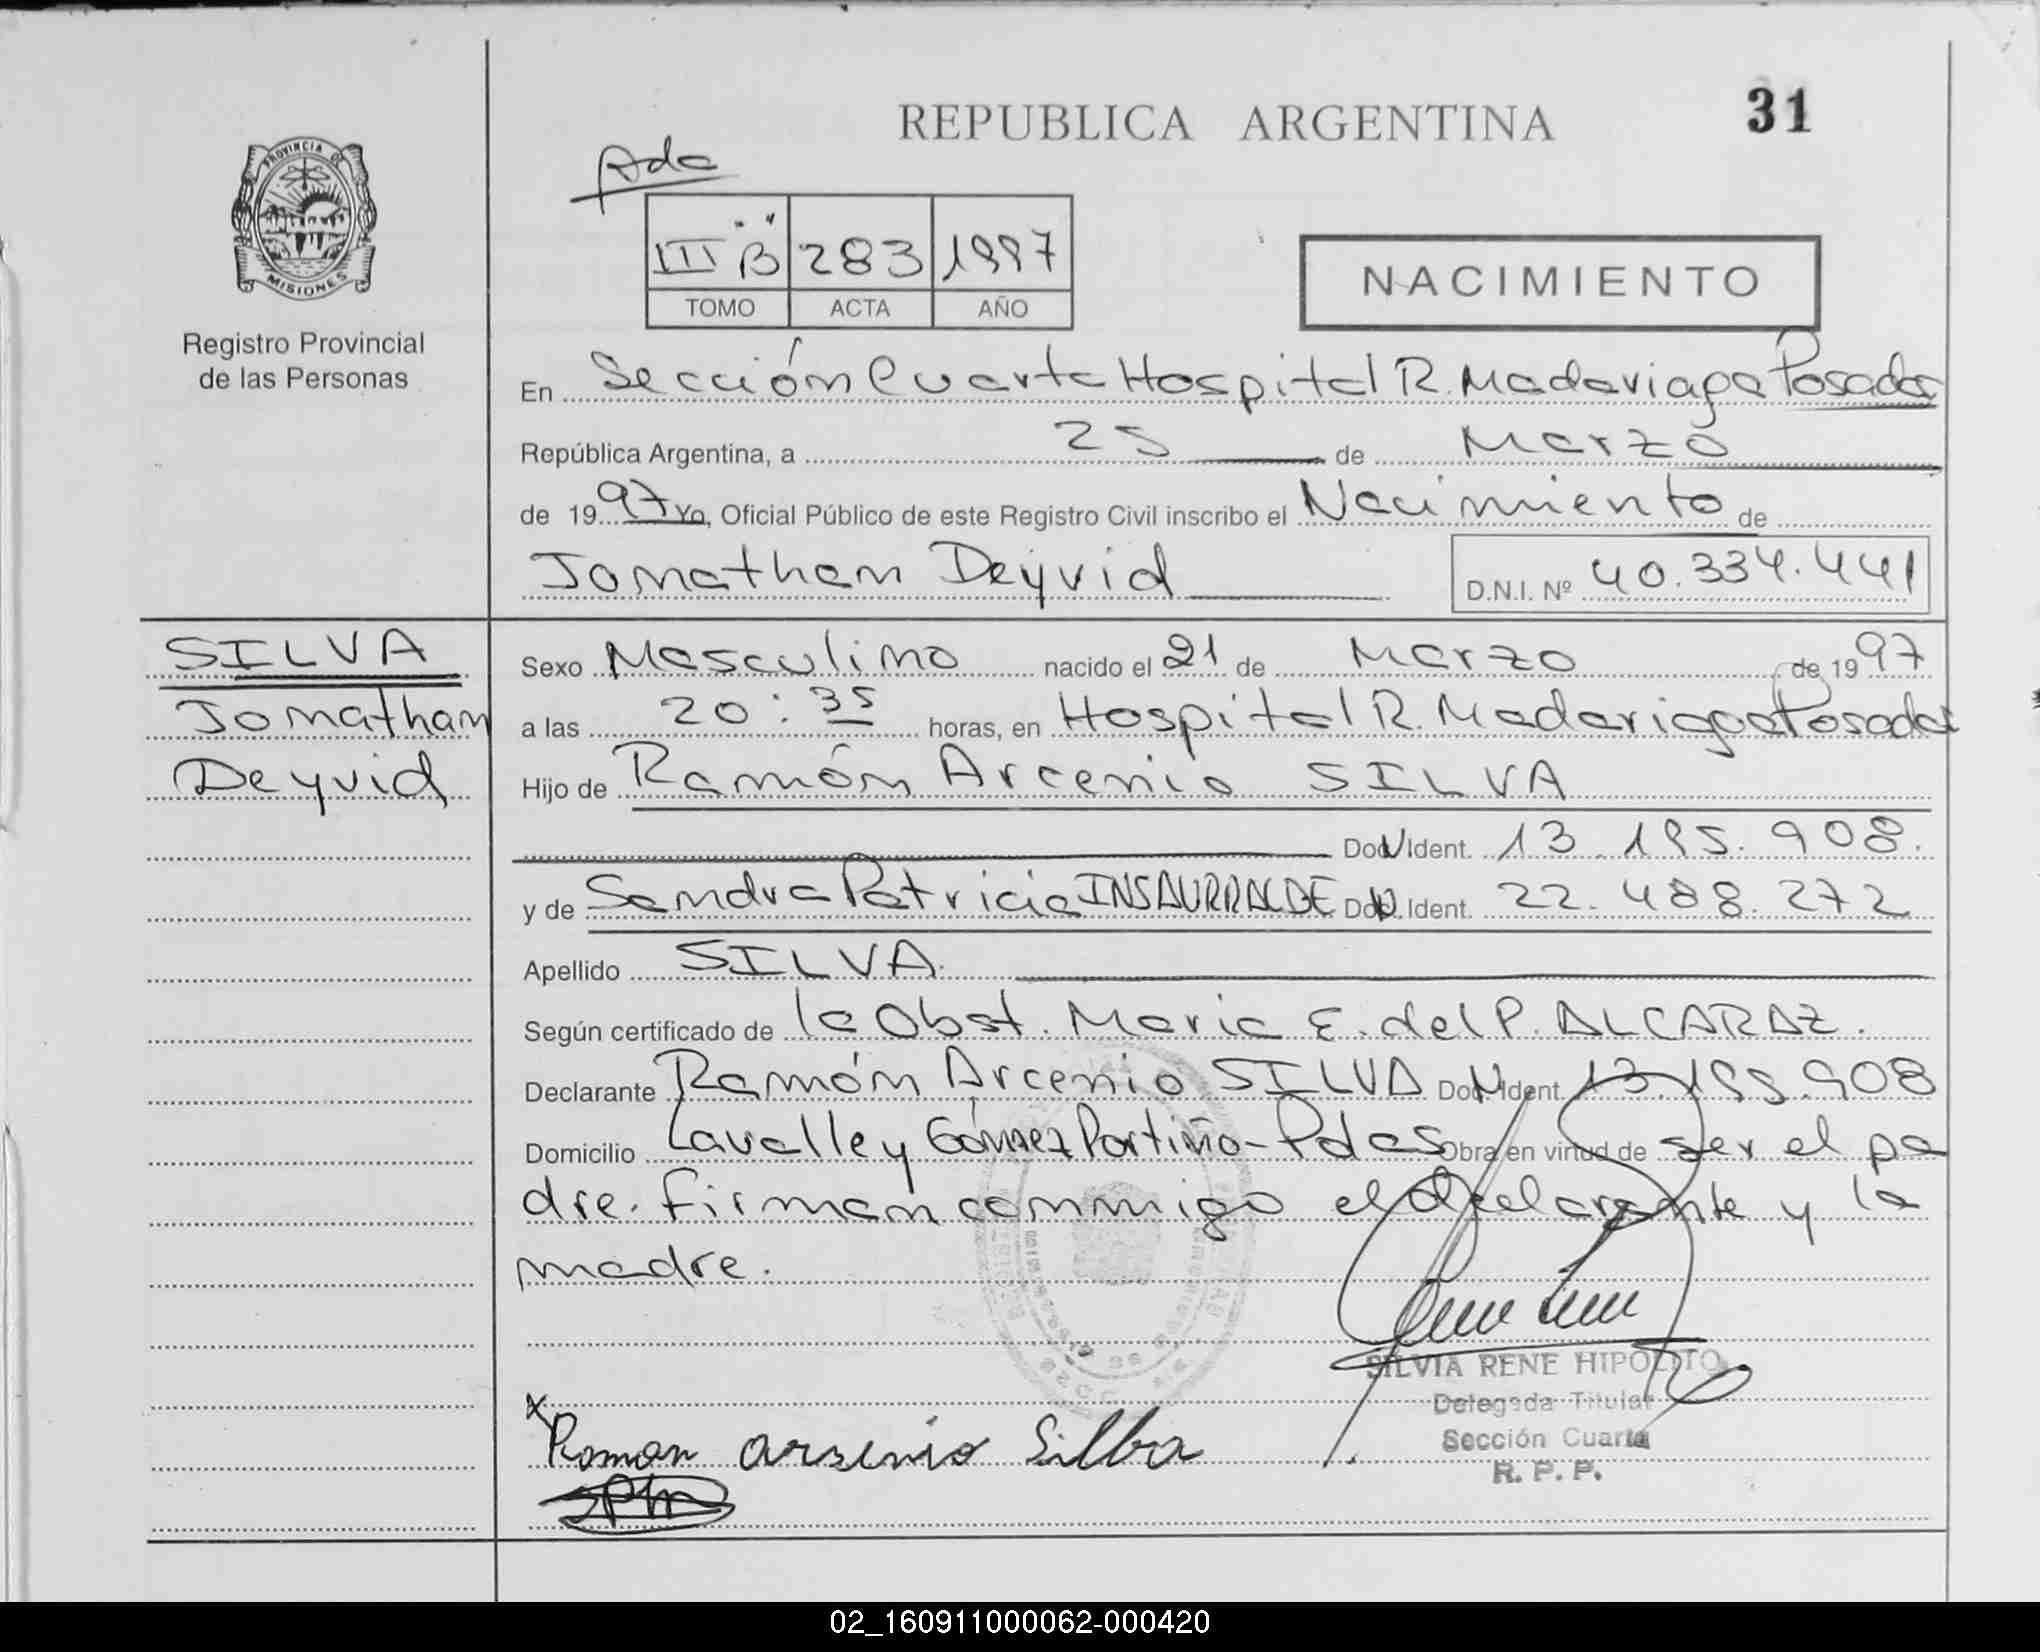 REPUBLICA ARGENTINA
31
PROVINCIA DE
MISIONES
Registro Provincial
de las Personas
III "B" 283 1997
TOMO ACTA AÑO
NACIMIENTO
En Sección Cuarta Hospital R. Madariaga Posadas
República Argentina, a 25 de Marzo
de 1997 Yo, Oficial Público de este Registro Civil inscribo el Nacimiento de
Jonathan Deyvid D.N.I. Nº 40.334.441
SILVA
Jonathan
Deyvid
Sexo Masculino nacido el 21 de Marzo de 1997
a las 20:35 horas, en Hospital R. Madariaga Posadas
Hijo de Ramón Arcenio SILVA
Doc. Ident. 13.195.908.
y de Sandra Patricia INSAURRALDE Doc. Ident. 22.488.272
Apellido SILVA.
Según certificado de la Obst. Maria E. del P. ALCARAZ.
Declarante Ramón Arcenio SILVA Doc. Ident. 13.195.908
Domicilio Lavalle y Gómez Portiño - Pdas Obra en virtud de ser el pa
dre. Firman conmigo el declarante y la
madre.
SILVIA RENE HIPOLITO
Delegada Titular
Sección Cuarta
R. P. P.
x Roman arsenio Silba
02_160911000062-000420